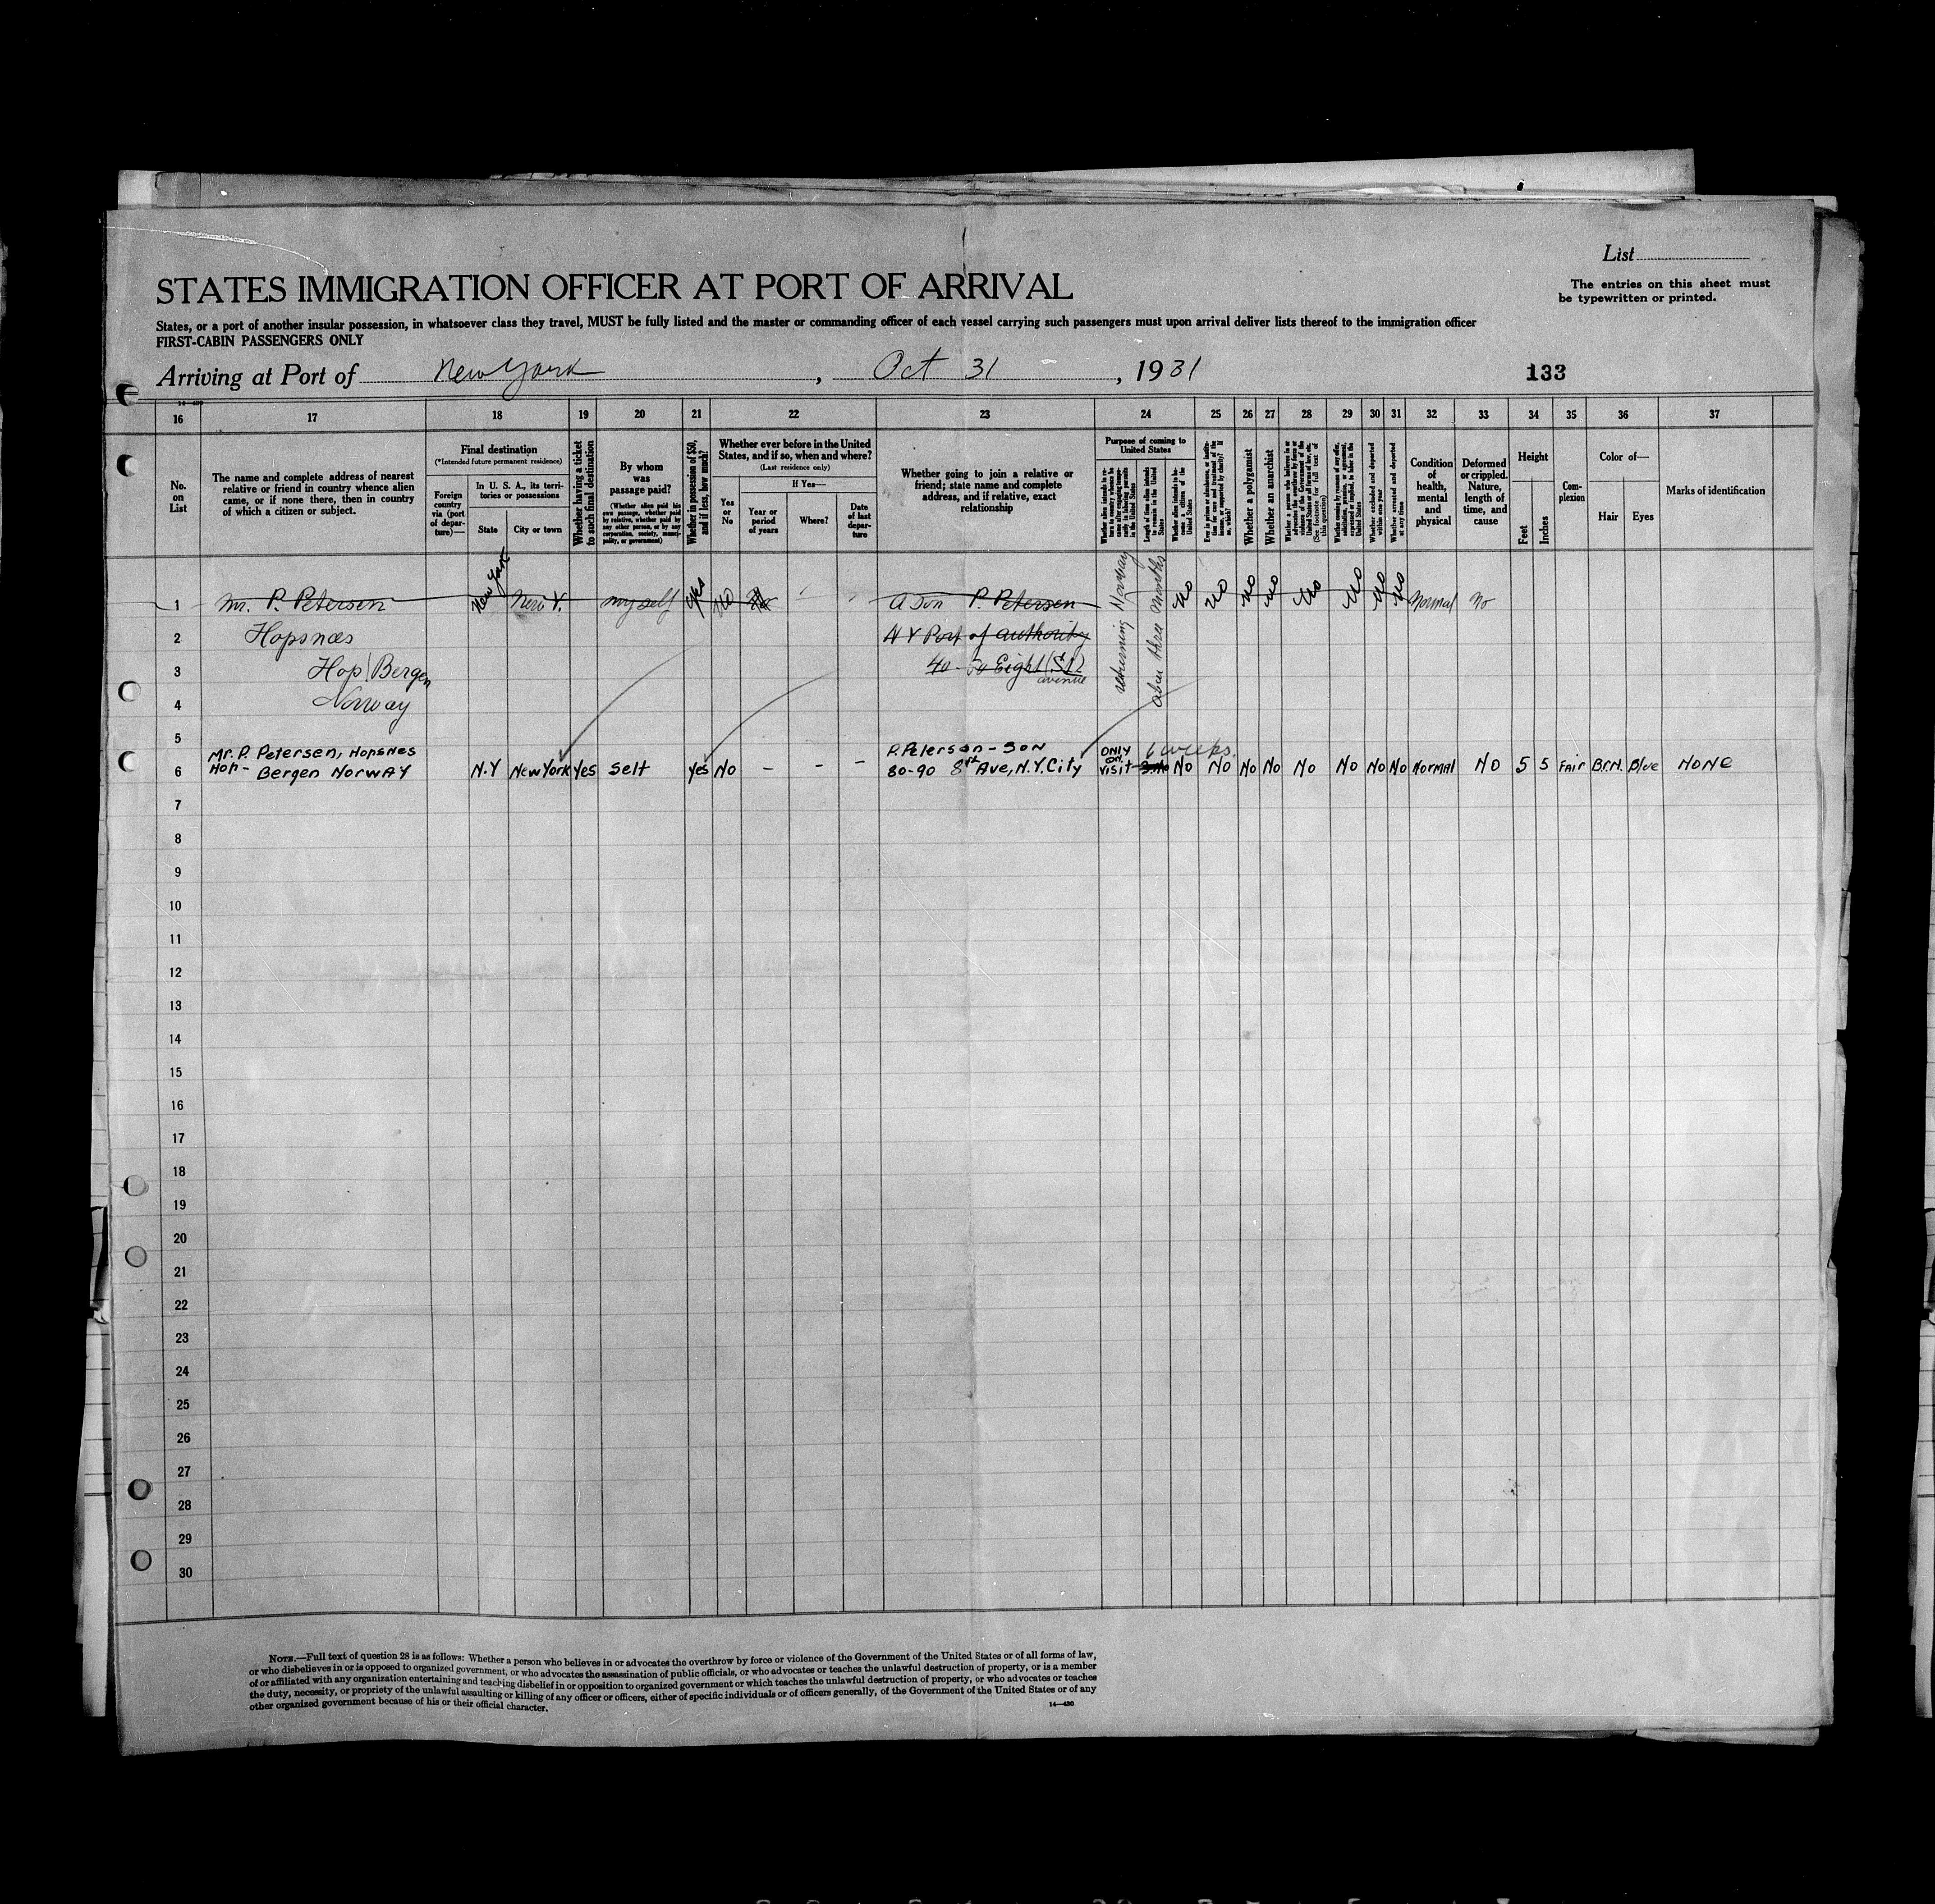 List
The entries on this sheet must
be typewritten or printed.
STATES IMMIGRATION OFFICER AT PORT OF ARRIVAL
States, or a port of another insular possession, in whatsoever class they travel, MUST be fully listed and the master or commanding officer of each vessel carrying such passengers must upon arrival deliver lists thereof to the immigration officer
FIRST-CABIN PASSENGERS ONLY
Arriving at Port of New York, Oct 31, 1931
133
16 17 18 19 20 21 22 23 24 25 26 27 28 29 30 31 32 33 34 35 36 37
No.
on
List
The name and complete address of nearest
relative or friend in country whence alien
came, or if none there, then in country
of which a citizen or subject.
Final destination
(*Intended future permanent residence)
Foreign
country
via (port
of depar-
ture)—
In U. S. A., its terri-
tories or possessions
State
City or town
Whether having a ticket
to such final destination
By whom
was
passage paid?
(Whether alien paid his
own passage, whether paid
by relative, whether paid by
any other person, or by any
corporation, society, munici-
pality, or government)
Whether in possession of $50,
and if less, how much?
Whether ever before in the United
States, and if so, when and where?
(Last residence only)
Yes
or
No
If Yes—
Year or
period
of years
Where?
Date
of last
depar-
ture
Whether going to join a relative or
friend; state name and complete
address, and if relative, exact
relationship
Purpose of coming to
United States
Length of time alien intends
to remain in the United
States
Whether alien intends to be-
come a citizen of the
United States
Whether a polygamist
Whether an anarchist
Whether excluded and deported
within one year
Whether arrested and deported
at any time
Condition
of
health,
mental
and
physical
Deformed
or crippled.
Nature,
length of
time, and
cause
Height
Feet
Inches
Com-
plexion
Color of—
Hair
Eyes
Marks of identification
1 Mr. P. Petersen New York New Y. myself Yes No a son P. Petersen returning Norway three months No No No No No No No No Normal No
2 Hopsnæs N Y Port of authority
3 Hop Bergen Eight
avenue
4 Norway
5
Mr. P. Petersen, Hopsnes P. Peterson - SON ONLY 6 weeks
6 Hop - Bergen Norway N.Y New York Yes Self Yes No – – – 80-90 8 Ave, N.Y. City on visit No No No No No No No No Normal No 5 5 Fair Brn. Blue None
7
8
9
10
11
12
13
14
15
16
17
18
19
20
21
22
23
24
25
26
27
28
29
30
NOTE.—Full text of question 28 is as follows: Whether a person who believes in or advocates the overthrow by force or violence of the Government of the United States or of all forms of law,
or who disbelieves in or is opposed to organized government, or who advocates the assassination of public officials, or who advocates or teaches the unlawful destruction of property, or is a member
of or affiliated with any organization entertaining and teaching disbelief in or opposition to organized government or which teaches the unlawful destruction of property, or who advocates or teaches
the duty, necessity, or propriety of the unlawful assaulting or killing of any officer or officers, either of specific individuals or of officers generally, of the Government of the United States or of any
other organized government because of his or their official character.
14—430